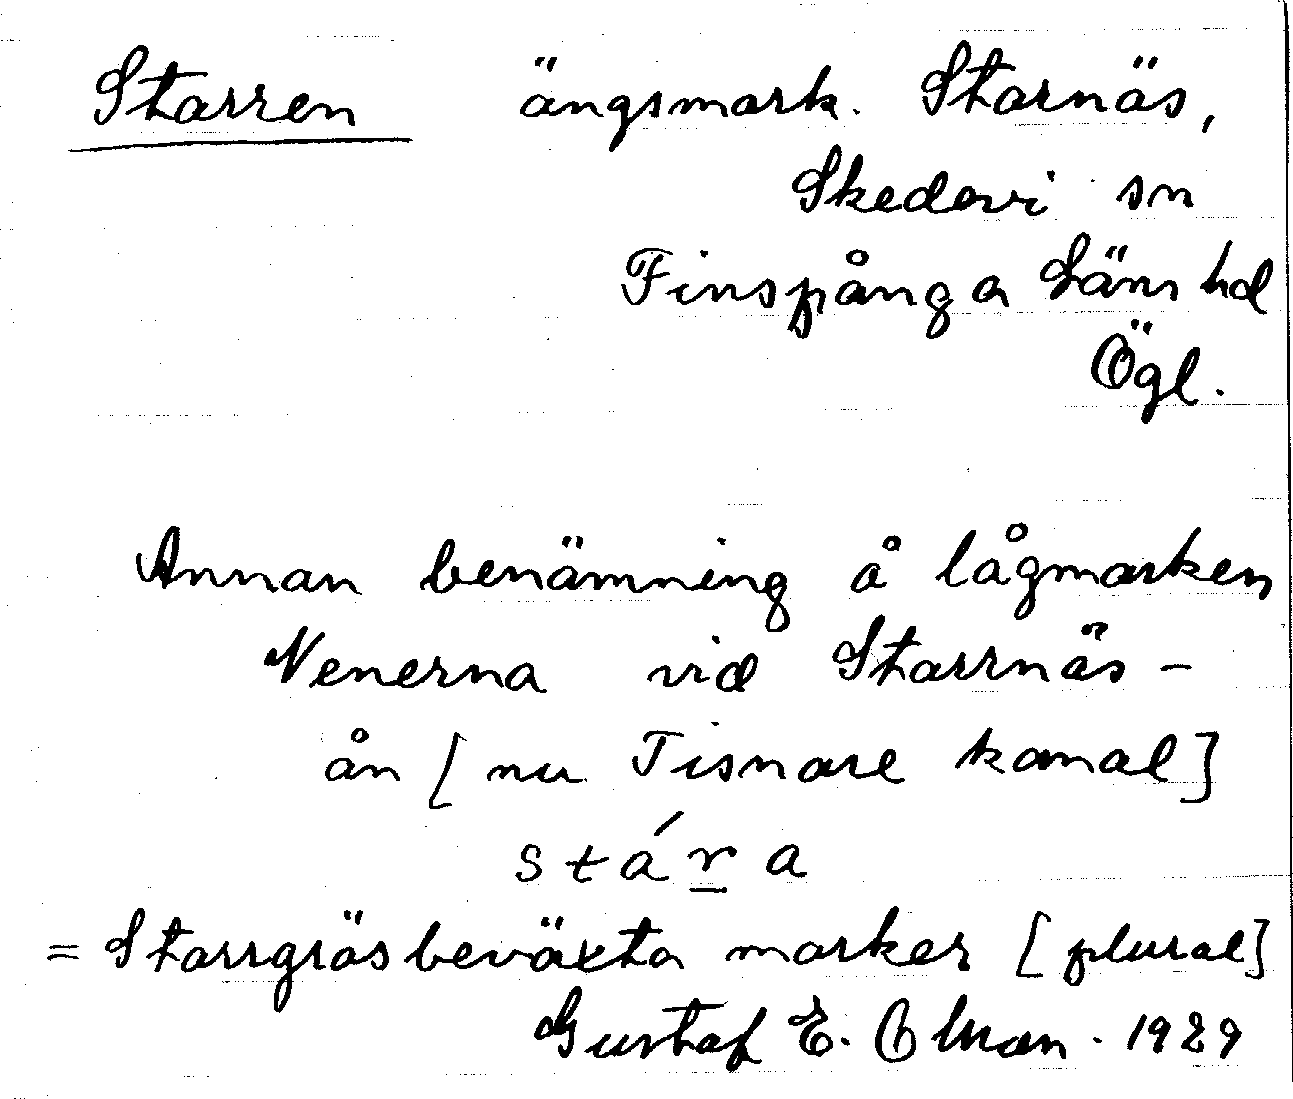 Starren ängsmark. Starnäs,
Skedevi sn
Finspånga Läns hd
Ögl.
Annan benämning å lågmarken
Nenerna vid Starrnäs-
ån [nu Tisnare kanal]
stára
= Starrgräsbeväxta marker [plural]
Gustaf E. Olman. 1929